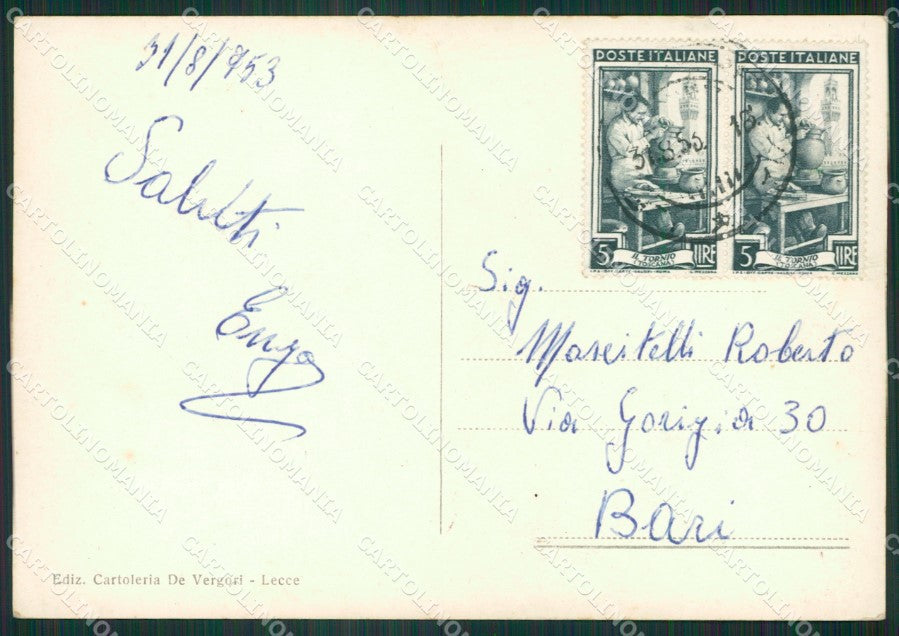 31/8/953
Saluti
Enzo
POSTE ITALIANE
POSTE ITALIANE
31.8.53. 18
5 LIRE
IL TORNIO
(TOSCANA)
5 LIRE
IL TORNIO
(TOSCANA)
Sig.
Mascitelli Roberto
Via Gorizia 30
Bari
Ediz. Cartoleria De Vergori - Lecce
CARTOLINOMANIA